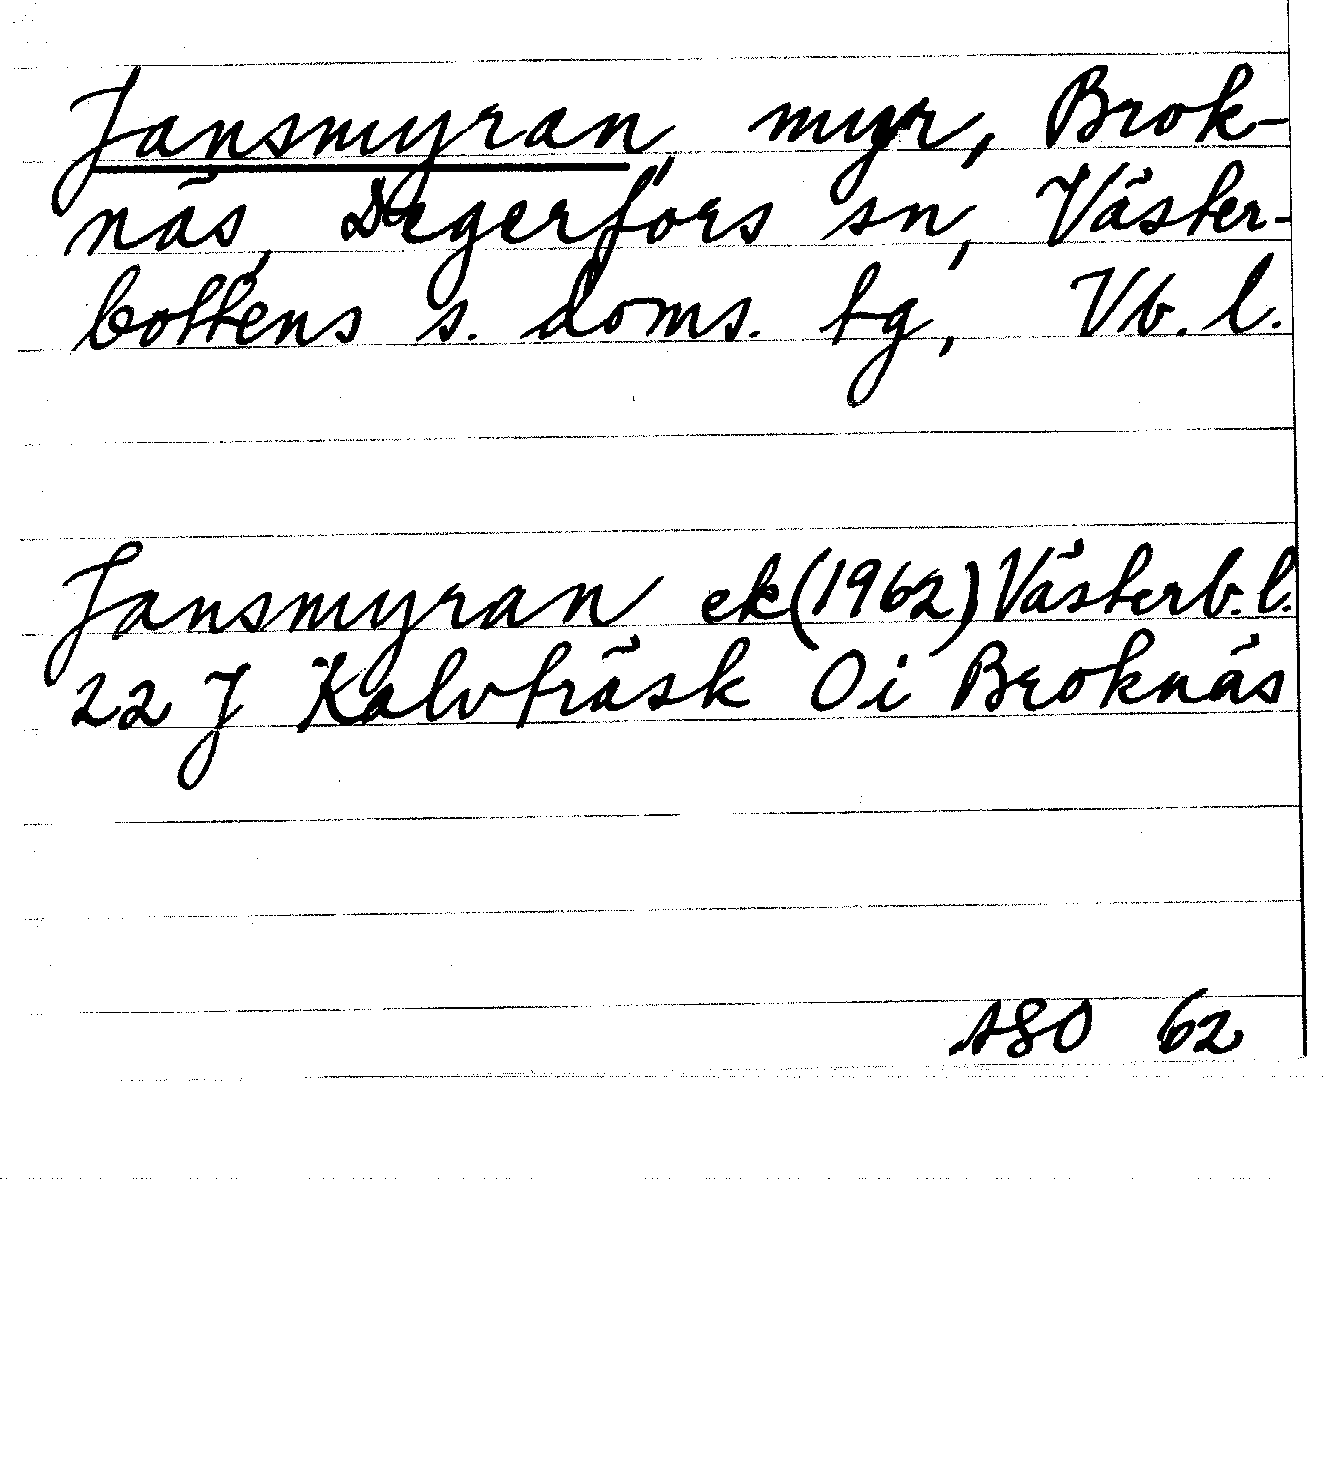 Jansmyran, myr, Brok-
näs, Degerfors sn, Väster-
bottens s. doms. tg, Vb. l.
Jansmyran ek (1962) Västerb. l.
22 J Kalvträsk 0i Broknäs
ASO 62